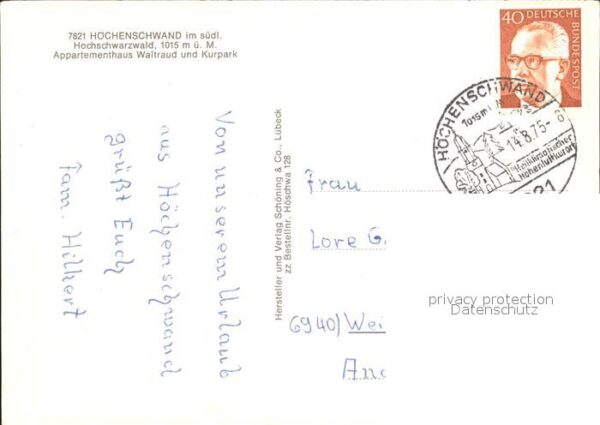 7821 HÖCHENSCHWAND im südl.
Hochschwarzwald, 1015 m ü. M.
Appartementhaus Waltraud und Kurpark
Von unserem Urlaub
aus Höchenschwand
grüßt Euch
Fam. Hilkert
Hersteller und Verlag Schöning & Co., Lübeck
zz Bestellnr. Höschwa 128
40 DEUTSCHE
BUNDESPOST
HÖCHENSCHWAND
1015 m
14.8.75-
Heilklimatischer
Höhenluftkurort
21
Frau
Lore G.
6940/Wei
And
privacy protection
Datenschutz